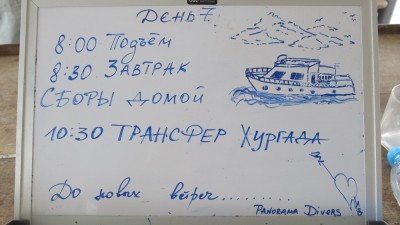 День 7.
8:00 Подъём
8:30 Завтрак
Сборы домой
10:30 Трансфер Хургада
До новых встреч..........
Panorama Divors